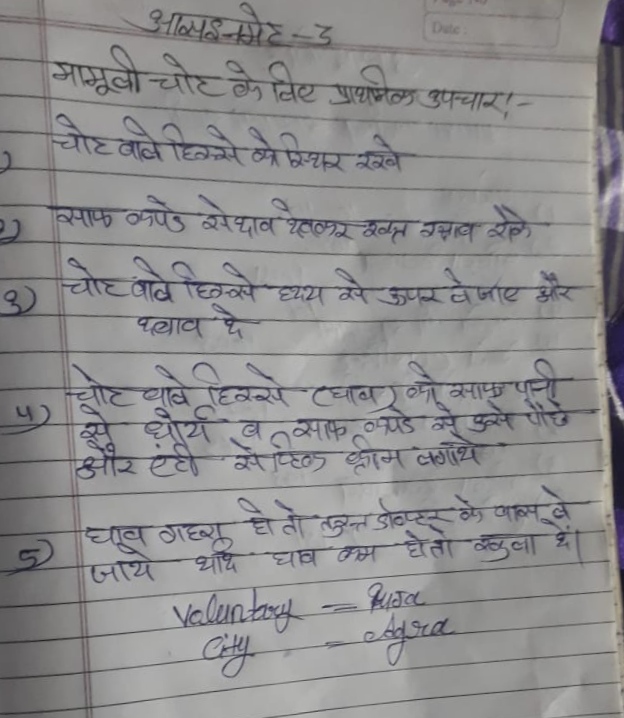 असाइनमेंट - 3
मामूली चोट के लिए प्राथमिक उपचार! -
1) चोट वाले हिस्से को स्थिर रखे
2) साफ कपडे से घाव ढककर रक्त स्त्राव रोके
3) चोट वाले हिस्से हृदय से ऊपर ले जाए और
दबाव दे
4) चोट वाले हिस्से (घाव) को साफ पानी
से धोये व साफ कपडे से उसे पोछे
और एंटी सेप्टिक क्रीम लगाये
5) घाव गहरा हो तो तुरन्त डॉक्टर के पास ले
जाये यदि घाव कम हो तो खुला दे।
Voluntary =
City = Agra
Date: